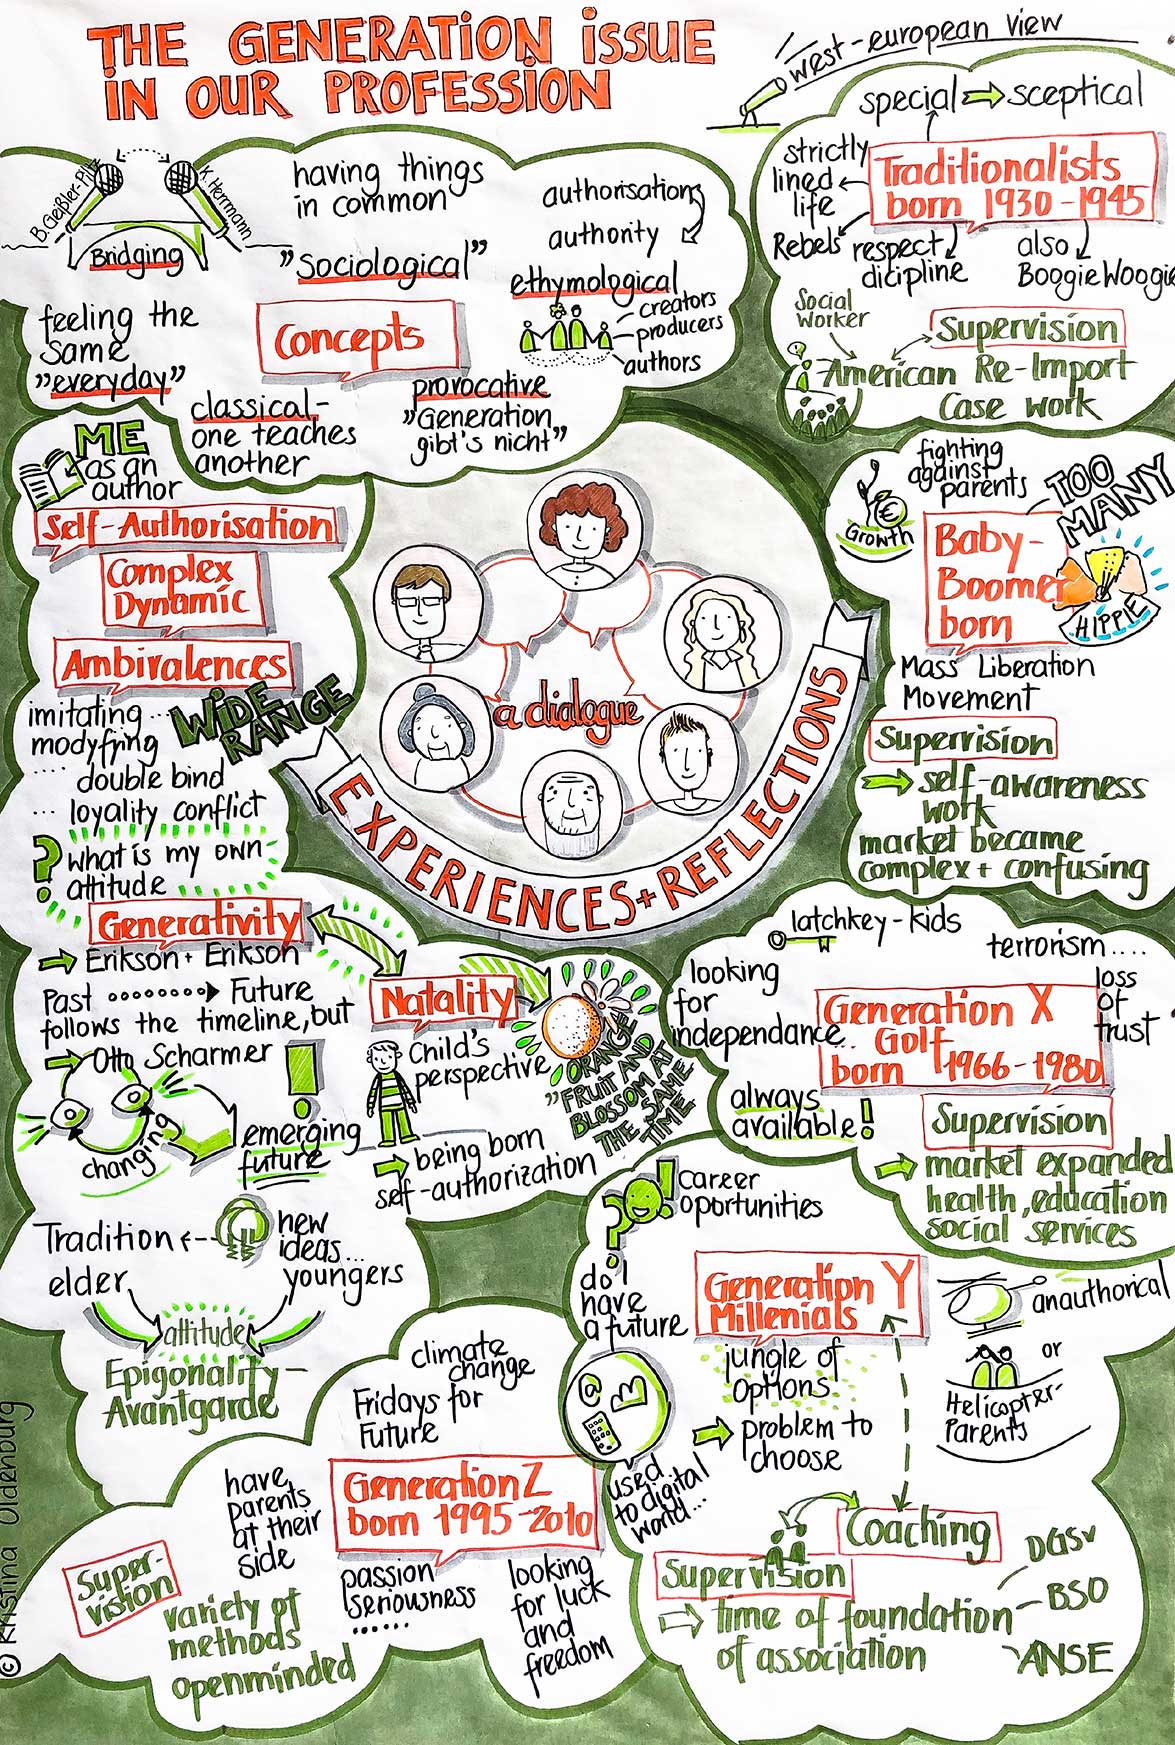 THE GENERATION ISSUE
IN OUR PROFESSION
west-european view
B. Geißler-Piltz
K. Herrmann
Bridging
having things
in common
"Sociological"
authorisation
authority
ethymological
creators
producers
authors
feeling the
same
"everyday"
Concepts
classical-
one teaches
another
provocative
"Generation
gibt's nicht"
special ⇒ sceptical
Traditionalists
born 1930-1945
strictly
lined
life
Rebels
respect
dicipline
also
Boogie Woogie
Social
Worker
Supervision
American Re-Import
Case work
ME
as an
author
Self-Authorisation
Complex
Dynamic
Ambivalences
WIDE
RANGE
imitating...
modyfing
.... double bind
... loyality conflict
? what is my own
attitude
a dialogue
EXPERIENCES + REFLECTIONS
fighting
against
parents
TOO
MANY
Growth
€
Baby-
Boomer
born
HIPPIE
Mass Liberation
Movement
Supervision
⇒ self-awareness
work
market became
complex + confusing
Generativity
⇒ Erikson + Erikson
Past ········▸ Future
follows the timeline, but
⇒ Otto Scharmer
changing
!
emerging
future
Natality
Child's
perspective
⇒ being born
self-authorization
"ORANGE
FRUIT AND
BLOSSOM AT
THE SAME
TIME
latchkey-kids
terrorism....
loss
of
trust
looking
for
independance..
Generation X
Golf
born 1966-1980
always
available!
Supervision
⇒ market expanded
health, education
social services
Tradition ←--
new
ideas...
elder
youngers
attitude
Epigonality-
Avantgarde
! career
oportunities
?
do I
have
a future
Generation Y
Millenials
jungle of
options
⇒ problem to
choose
@
used
to digital
world...
anauthorical
or
Helicopter-
Parents
Coaching
Supervision
⇒ time of foundation
of association
DGSv
BSO
ANSE
climate
change
Fridays for
Future
Generation Z
born 1995-2010
have
parents
at their
side
passion
seriowsness
......
looking
for luck
and
freedom
Super-
vision
variety of
methods
openminded
© Kristina Oldenburg